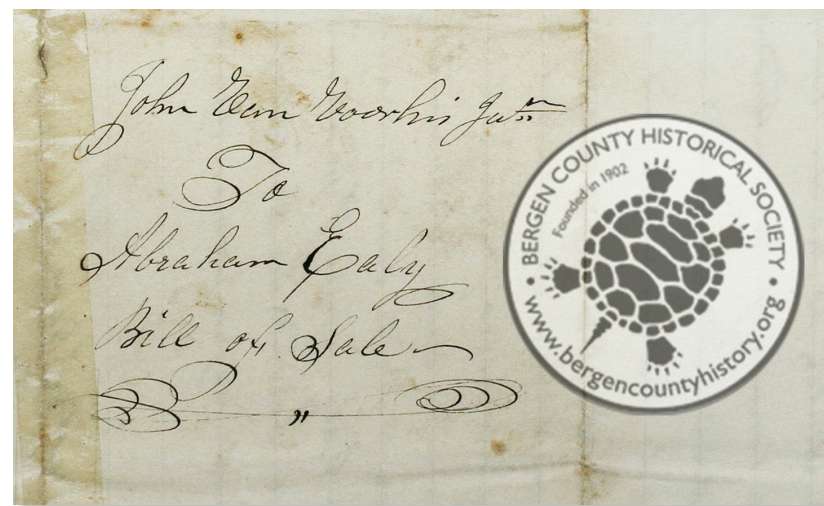 John Van Voorhis Junr
To
Abraham Ealy
Bill of Sale
"
BERGEN COUNTY HISTORICAL SOCIETY
Founded in 1902
www.bergencountyhistory.org